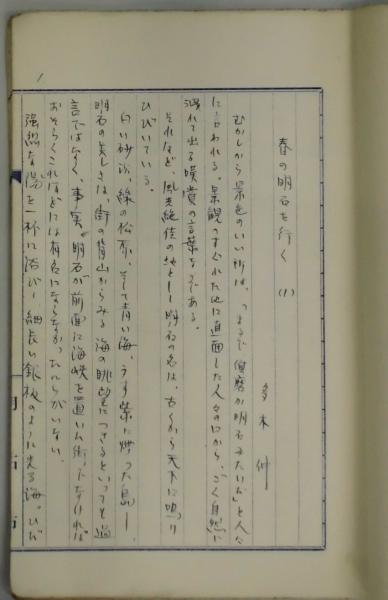 春の明石を行く (1)
多木伸
むかしから景色のいい所は、「まるで須磨か明石みたいだ」と人々
に言われる。景観のすぐれた地に直面した人々の口から、ごく自然に
溢れて出る嘆賞の言葉なのである。
それほど、風光絶佳の地として明石の名は、古くから天下に鳴り
ひびいている。
白い砂浜、緑の松原、そして青い海、うす紫に煙った島—
明石の美しさは、街の背山からみる海の眺望につきるといっても過
言ではなく、事実、明石が前面に海峡を置いた街でなければ
おそらくこれほどには有名にならなかったにちがいない。
強烈な陽を一杯に浴び、細長い銀板のように光る海。ひだ